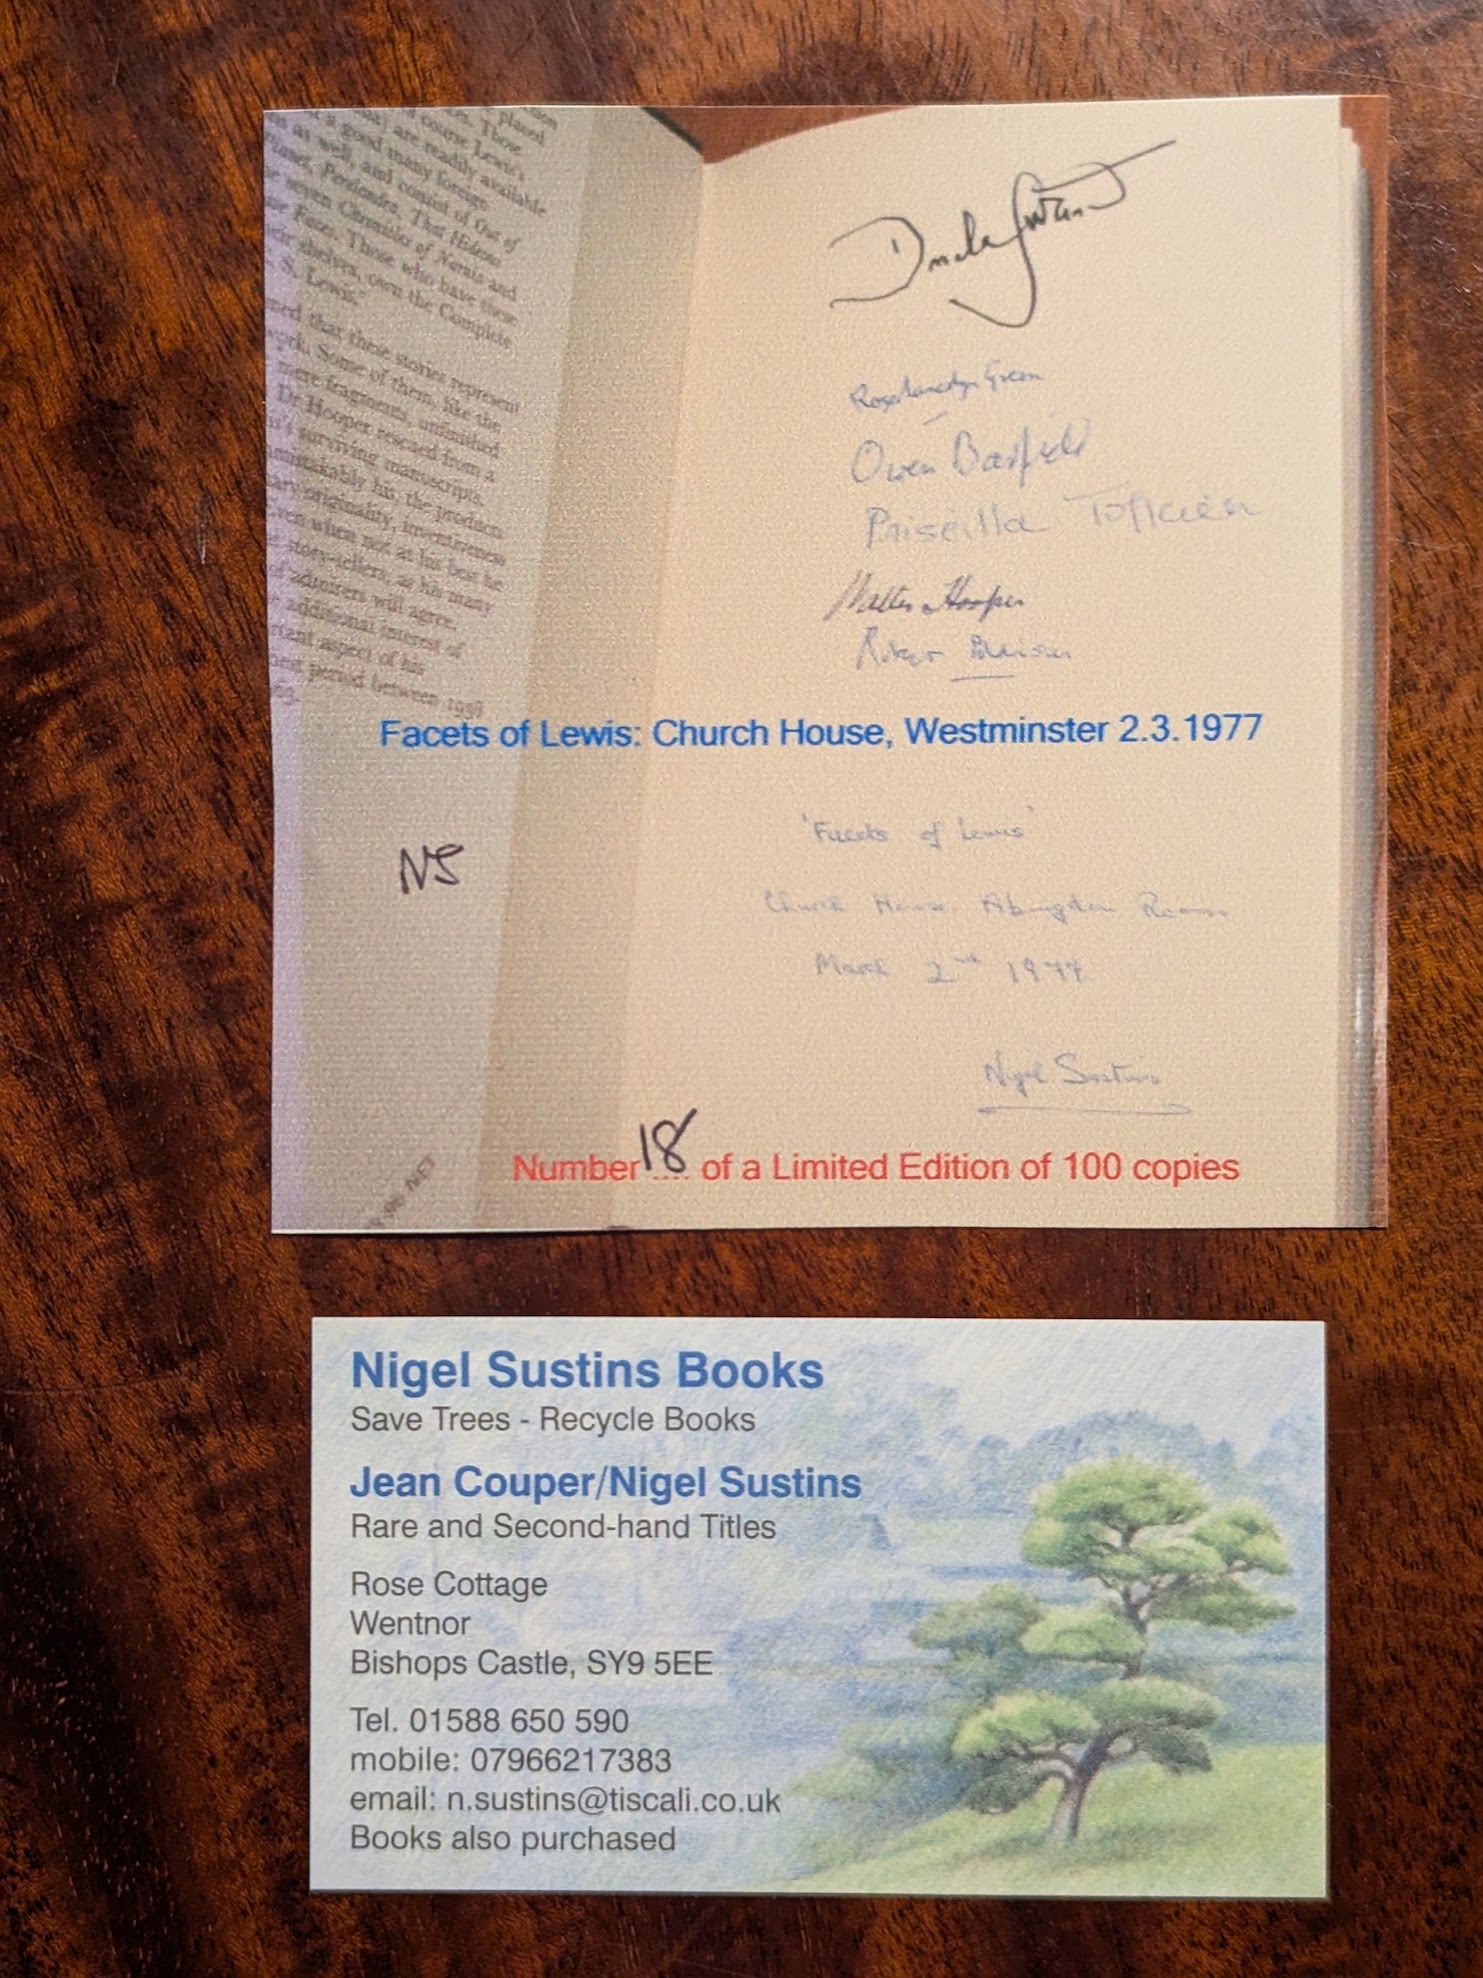 placed
course Lewis's
are readily available
a good many foreign
as well, and consist of Out of
Perelandra, That Hideous
seven Chronicles of Narnia and
Faces. Those who have these
shelves, own the Complete
S. Lewis."
that these stories represent
work. Some of them, like the
mere fragments, unfinished
Dr Hooper rescued from a
surviving manuscripts.
unmistakably his, the product
originality, inventiveness
Even when not at his best he
story-tellers, as his many
of admirers will agree.
additional interest of
aspect of his
period between 1938
Owen Barfield
Priscilla Tolkien
Walter Hooper
Facets of Lewis: Church House, Westminster 2.3.1977
'Facets of Lewis'
Church House Abingdon Room
March 2nd 1977
NS
Nigel Sustins
Number 18 of a Limited Edition of 100 copies
NET
Nigel Sustins Books
Save Trees - Recycle Books
Jean Couper/Nigel Sustins
Rare and Second-hand Titles
Rose Cottage
Wentnor
Bishops Castle, SY9 5EE
Tel. 01588 650 590
mobile: 07966217383
email: n.sustins@tiscali.co.uk
Books also purchased